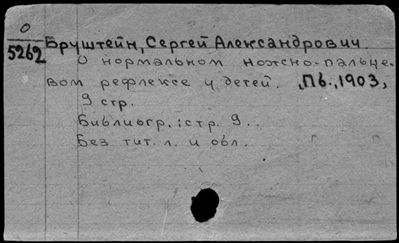 О
5262
Бруштейн, Сергей Александрович
О нормальном ножно-пальце-
вом рефлексе у детей. Пб., 1903,
9 стр.
Библиогр.: стр. 9..
Без тит. л. и обл.